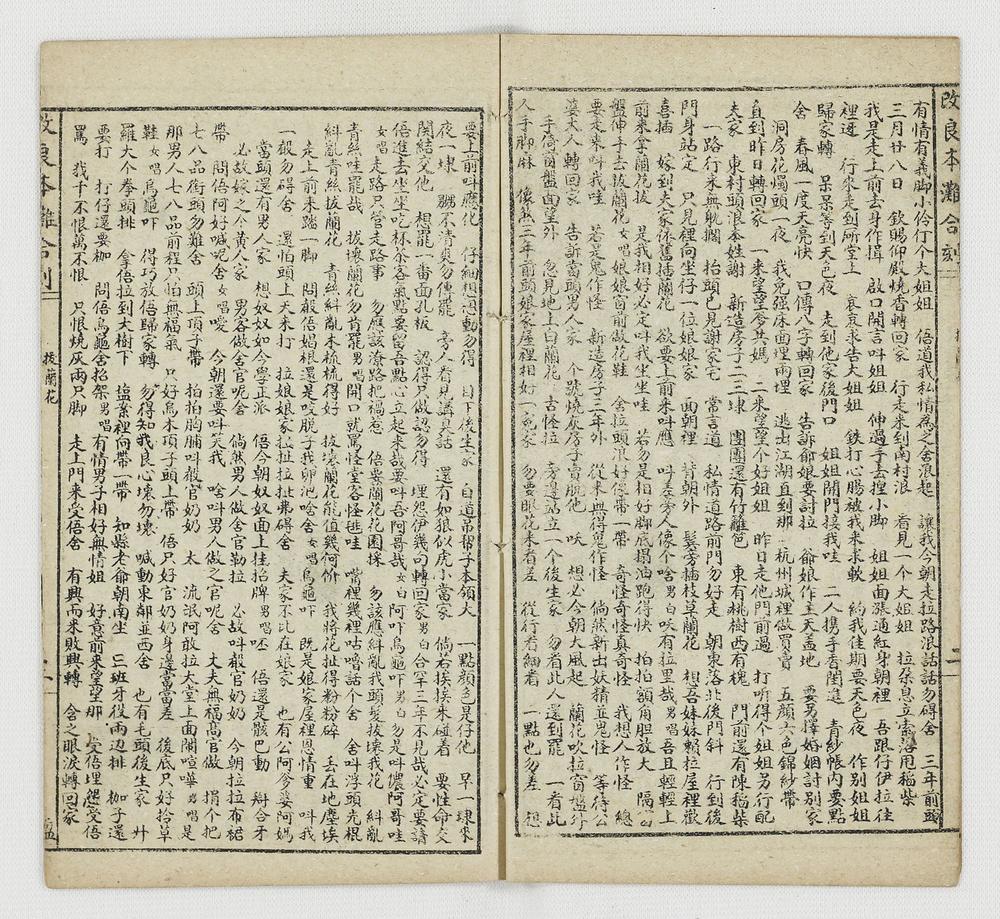 改良本灘合刻
有情有義脚小伶仃个大姐姐　倍道我私情為之舍浪起　讓我今朝走拉路浪話話勿碍舍　三年前頭
三月廿八日　欽賜仰殿燒香轉回家　行走來到南村浪　看見一个大姐姐　拉朶息立索落甩稲柴
我是走上前去身作揖　啟口開言叫姐姐　伸過手去揑小脚　姐姐面漲通紅身朝裡　吾跟仔伊拉往
裡進　行來走到所堂上　哀哀求告大姐姐　鉄打心腸被我來求軟　約我佳期要天色夜　作別姐姐
歸家轉　呆呆等到天色夜　走到他家後門口　姐姐開門接我哇　二人携手香閨進　青紗帳內要點
舍　春風一度天亮快　口傳八字轉回家　告訴爺娘要討拉　爺娘作主天盖地　要另擇婚姻討別家
洞房花燭頭一夜　我免强床面裡兩埋　逃出江湖直到那　杭州城裡做買賣　五顔六色錦紗帶
直到昨日轉回家　一來望望爹共媽　二來望望个好姐姐　昨日走他門前過　打听得个姐姐另行配
夫家　東村頭浪本姓謝　新造房子二三埭　團團還有竹籬笆　東有桃樹西有槐　門前還有陳稲柴
一路行來無躭擱　抬頭已見謝家宅　常言道　私情道路前門勿好走　朝東落北後門斜　行到後
門身站定　只見裡向坐仔一位娘娘家　面朝裡　背朝外　鬂旁插枝草蘭花　想吾妹妹賴拉屋裡歡
喜插　嫁到夫家依舊插蘭花　欲要上前來叫應　叫差左旁人像个啥男白唉有拉里哉男唱吾且輕輕上
前來拿蘭花拔　是我相好必定叫我坐坐哇　若勿是相好脚底搨油跑得快　拍拍額角胆放大　隔个
盤伸手去拔蘭花女唱娘娘窗前做花鞋　舍拉頭浪好像帶一帶　奇怪奇怪真奇怪　我想人作怪　總
要走來叫我哇　若是鬼作怪　新造房子三年外　從來無得鬼作怪　倘然新出妖精並鬼怪　等待公
婆大人轉回家　告訴當頭男人家　个號燒灰房子賣脫他　吙　想必今朝大風起　蘭花吹拉窗檻外
手倚窗盤面望外　忽見地上白蘭花　古怪拉　旁邊站立一个後生家　勿看此人還到罷　一看此
人手脚麻　像煞三年前頭娘家屋裡相好一寃家　勿要眼花來看差　從行看細看　一點也勿差　想
要上前叫應化　仔細想想動勿得　目下後生家　白道吊帮子本領大　一點顔色是仔他　早一埭來
夜一埭　躰不清爽勿傳罷　旁人看見講真話　還有如狼似虎小當家　倘若挨挨朱碰着　要性命交
関結交他　想罷一番面孔板　認得只做認勿得　埋怨伊幾句轉回家男白合罕三年不見哉必定要請
倍進去坐坐吃杯茶客氣點要留吾點心立起來哉要叫吾阿哥哉女白阿吓烏龜吓男白勿是叫儂阿哥哇
女唱走路只管走路事　勿應該潦路把禍惹　倍要蘭花花園採　勿該應糾亂我頭髮拔壞我花　糾亂
青絲哇罷哉　拔壞蘭花勿肯罷男唱開口就罵怪堂客怪難哇　嘗裡幾裡咕嚕話个舍　舍叫浮頭光棍
糾亂青絲拔蘭花　青絲糾亂木梳梳得好　拔壞蘭花能值幾何價　我將花扯得粉粉碎　丢在地塵埃
走上前來踏一脚　問般倍娼根還是咬脫子我卵池啥舍女唱烏龜吓　既是娘家屋裡恩情重　叫我
一般勿碍舍　還怕頭上天來打　拉娘娘家拉扯拉扯弗碍舍　夫家不比在娘家　也有公阿爹婆阿媽
當頭還有男人家　想奴奴如今學正派　倍今朝奴奴面上挂招牌男唱呸　倍還是骸巴動　辯合牙
必故嫁之个黄人家　男客做舍官呢舍　倘煞男人做舍官勒拉　必故叫殺官奶奶　今朝拉拉布裙
帶　問倍阿好喊呢舍女唱嗳　今朝還要叫笑我　啥叫男人做之官呢舍　丈夫無福高官做　捐个把
七八品銜頭勿難舍　頭上頂子帶　拍拍胸脯叫殺官奶奶　太　流氓阿敢拉大堂上面閙喧嘩男唱是
那男人七八品前程只怕無福氣　只好烏木頂子頭上帶　倍只好官奶奶身邊當當差　後底只好拾草
鞋女唱烏龜吓　得巧放倍歸家轉　勿得知我良心壞勿壞　喊動東鄰並西舍　也有毛頭後生家　廾
羅大个拳頭排　拿倍拉到大樹下　塩紮裡向帶一帶　知縣老爺朝南坐　三班牙役兩边排　枷子還
要打　打仔還要枷　問倍烏龜舍招架男唱有情男子相好無情姐　好意前來望望那　受倍埋怨受倍
罵　我千不恨萬不恨　只恨燒灰兩只脚　走上門來受倍舍　有興而來敗興轉　含之眼淚轉回家
改良本灘合刻
拔蘭花
二